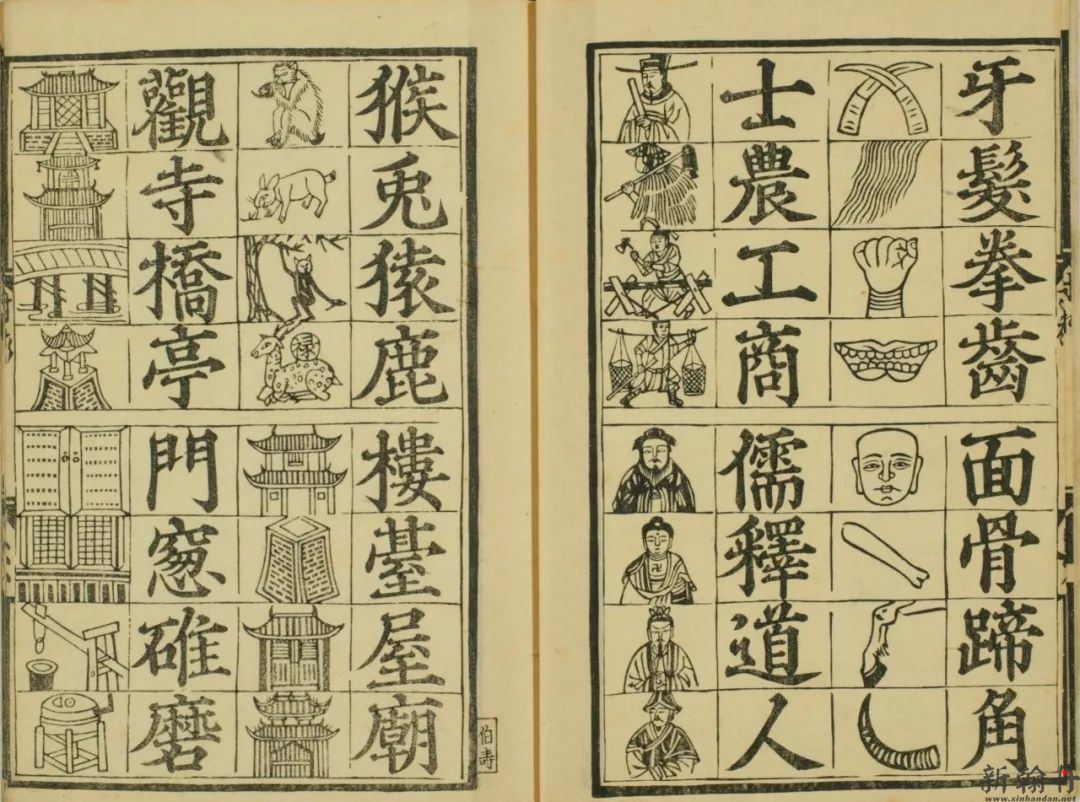 牙髮拳齒
面骨蹄角
士農工商
儒釋道人
猴兎猿鹿
禄
樓臺屋廟
觀寺橋亭
門窻碓磨
伯壽
www.xinhandan.net